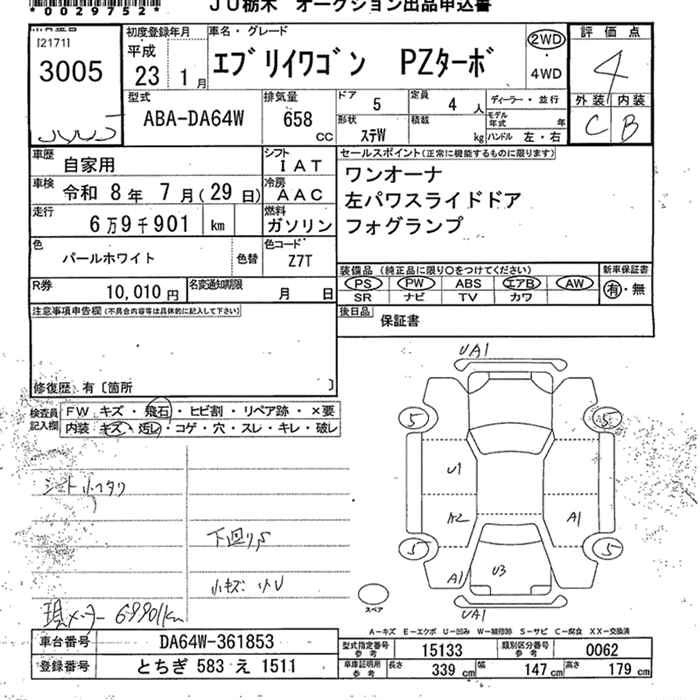 *0029752*
JU栃木 オークション出品申込書
[2171]
3005
初度登録年月
平成
23 1月
車名・グレード
エブリイワゴン PZターボ
2WD
・
4WD
評価点
4
外装 内装
C B
型式
ABA-DA64W
排気量
658 cc
ドア 5
定員 4人
ディーラー・並行
形状 ステW
積載 kg
モデル年式 年
ハンドル 左・右
車歴 自家用
シフト IAT
車検 令和 8年 7月(29日)
冷房 AAC
走行 6万9千901 km
燃料 ガソリン
色 パールホワイト 色替
色コード Z7T
R券 10,010円
名変通知期限 月 日
セールスポイント(正常に機能するものに限ります)
ワンオーナ
左パワスライドドア
フォグランプ
装備品(純正品に限り○をつけてください)
PS PW ABS エアB AW
SR ナビ TV カワ
新車保証書
有・無
後日品 保証書
注意事項申告欄(不具合内容等は具体的に記入して下さい)
修復歴 有〔箇所 〕
検査員記入欄
FW キズ・飛石・ヒビ割・リペア跡・×要
内装 キズ・汚レ・コゲ・穴・スレ・キレ・破レ
下回りS
小キズ 小U
現メーター 69901km
UA1
5 5
U1
A2 A1
5 5
A1 U3
UA1
スペア
A-キズ E-エクボ U-凹み W-補修跡 S-サビ C-腐食 XX-交換済
車台番号 DA64W-361853
登録番号 とちぎ 583 え 1511
型式指定番号 参考 15133
類別区分番号 参考 0062
車庫証明用 参考 長さ 339cm 幅 147cm 高さ 179cm